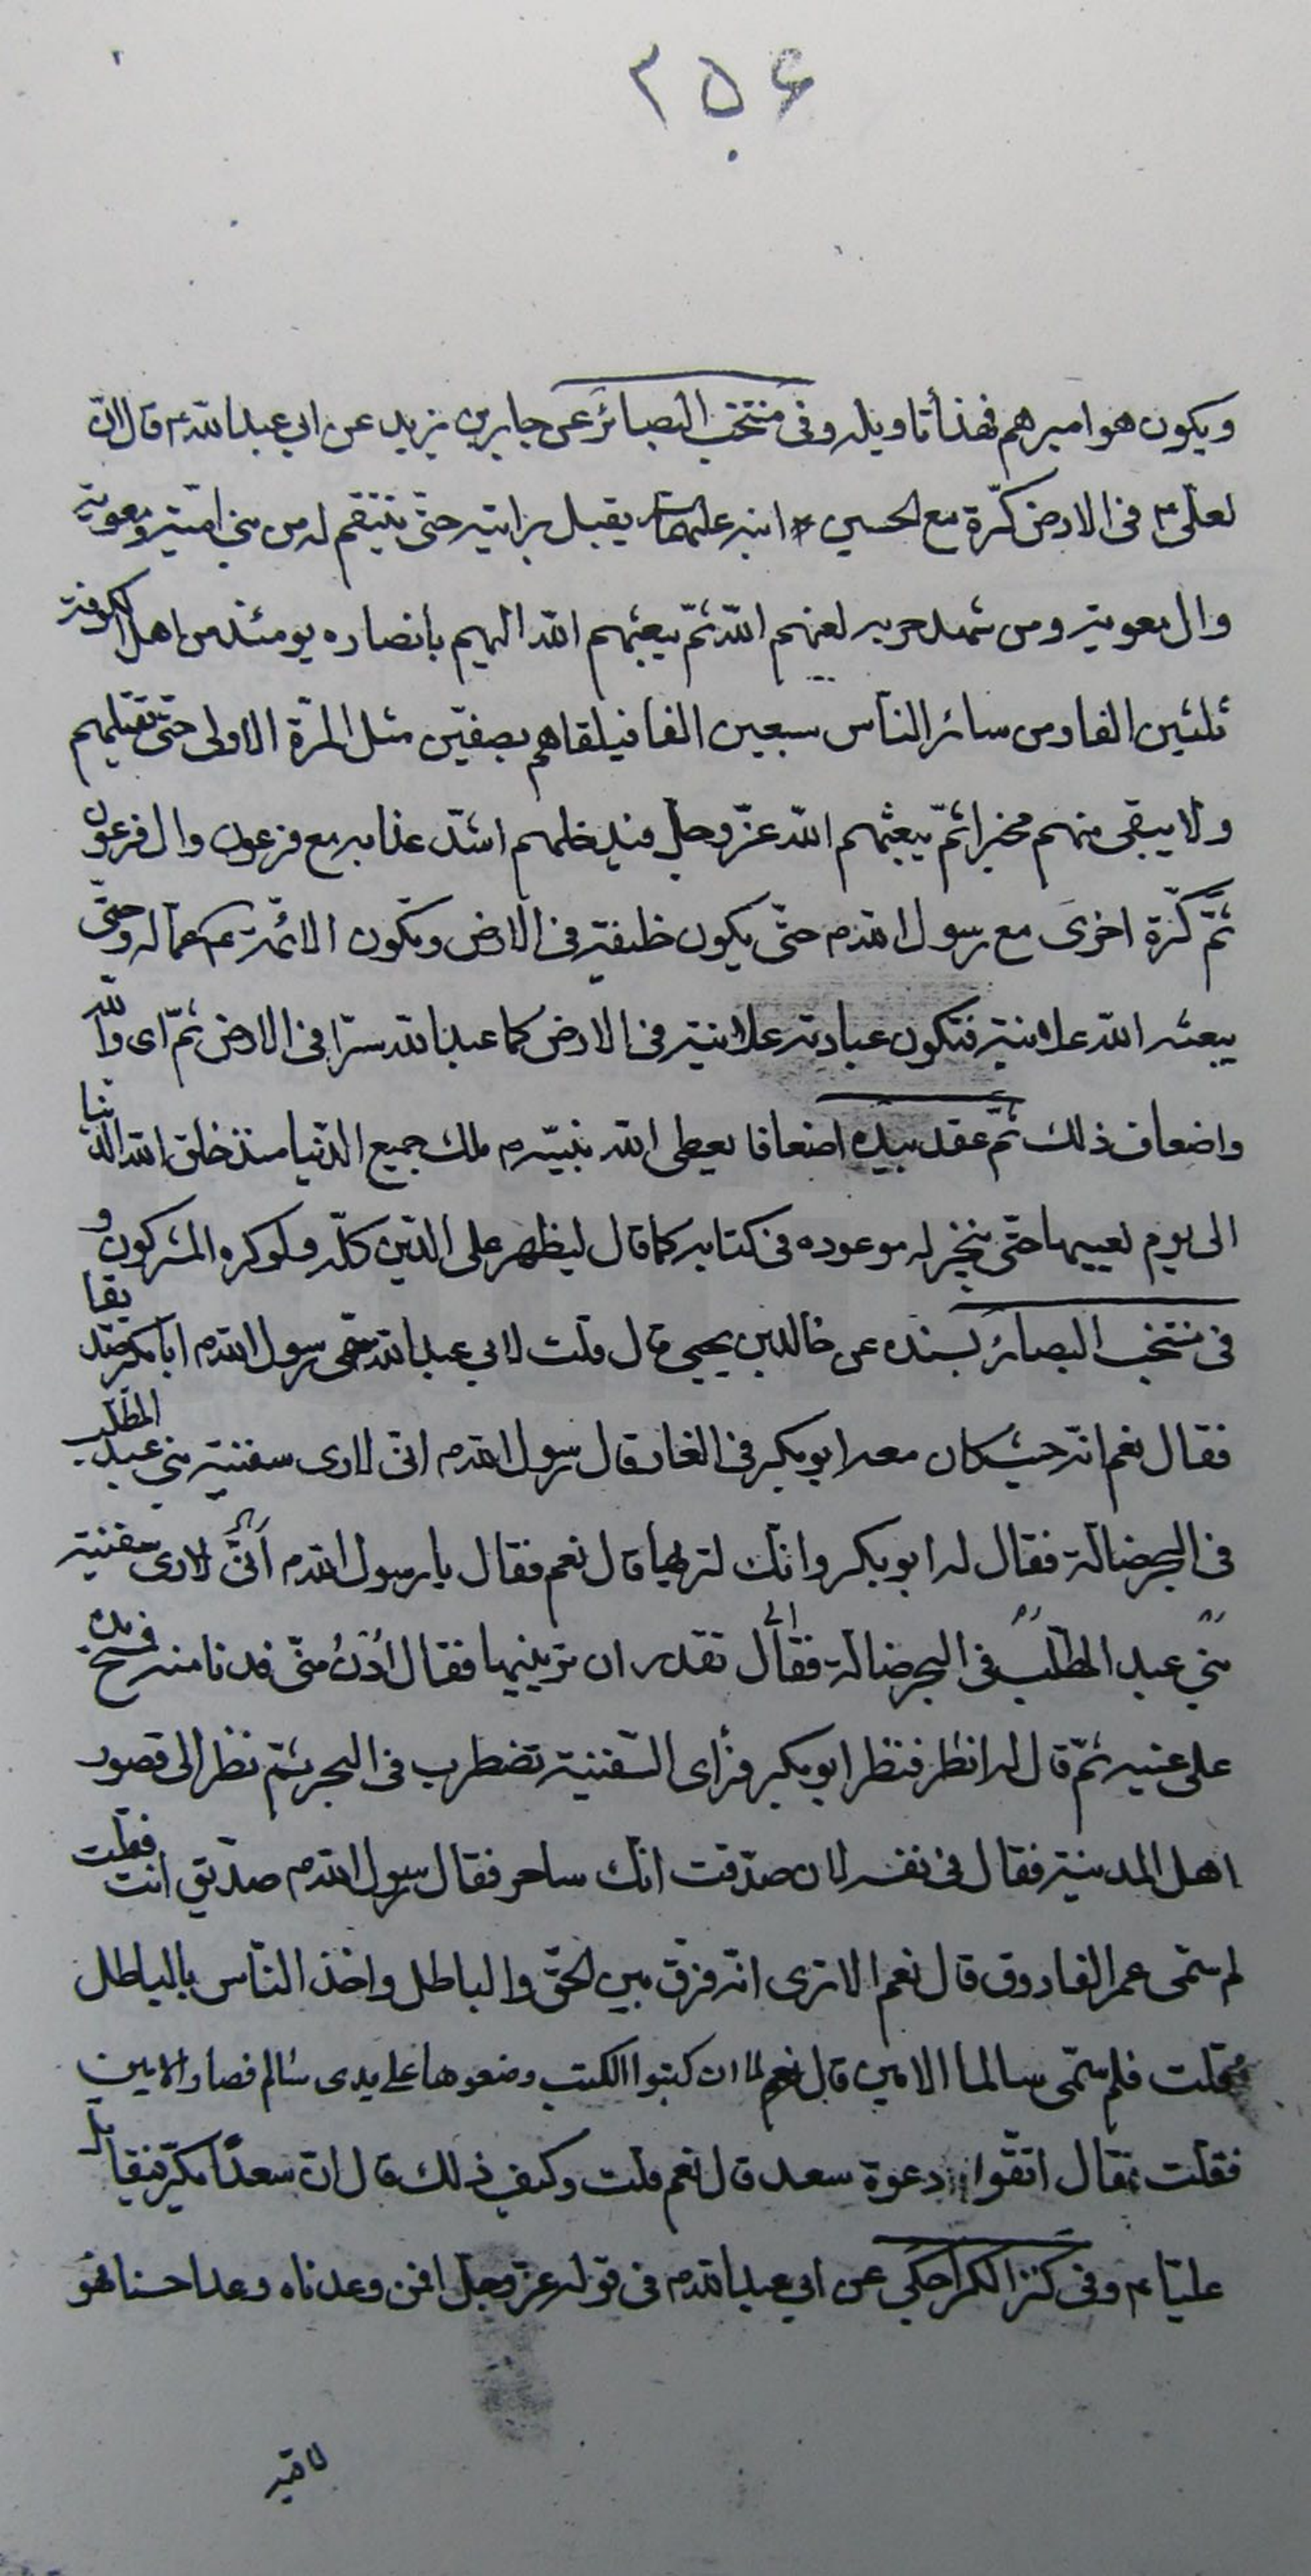 ۲۵۶
ويكون هو اميرهم فهذا تاويله وفى منتخب البصائر عن جابر بن يزيد عن ابى عبد الله ع قال ان
لعلى ع فى الارض كرّة مع الحسين ابنه عليهما يقبل برايته حتى ينتقم له من بنى اميّة ومعوية
وال معوية ومن شهد حربه لعنهم الله ثمّ يبعثهم الله اليهم بأنصاره يومئذ من اهل الكوفة
ثلثين الفا ومن سائر الناس سبعين الفا فيلقاهم بصفّين مثل المرّة الاولى حتى تقتلهم
ولا يبقى منهم مخبرا ثمّ يبعثهم الله عزّ وجل فيدخلهم اشدّ عذابه مع فرعون وال فرعون
ثمّ كرّة اخرى مع رسول الله ص حتّى يكون خليفة فى الارض وتكون الائمّة ع عماله وحتّى
يبعثه الله علانية فتكون عبادته علانية فى الارض كما عبد الله سرّا فى الارض ثمّ اى والله
واضعاف ذلك ثمّ عقد بيده اضعافا يعطى الله نبيّه ص ملك جميع الدّنيا منذ خلق الله الدّنيا
الى يوم يفنيها حتّى ينجز له موعوده فى كتابه كما قال ليظهر على الدّين كلّه ولو كره المشركون و
فى منتخب البصائر بسنده عن خالد بن يحيى قال قلت لابى عبد الله سمّى رسول الله ص ابا بكر صدّيقا
فقال نعم انّه حيث كان معه ابو بكر فى الغار قال رسول الله ص انى لارى سفينة بنى عبد المطّلب
فى البحر ضالّة فقال له ابو بكر وانّك لتريها قال نعم فقال يا رسول الله ص لارى سفينة
بنى عبد المطّلب فى البحر ضالّة فقال تقدر ان ترينيها فقال اُدْنُ منّى فدنا منه فمسح يده
على عينيه ثمّ قال له انظر فنظر ابو بكر فرأى السّفينة تضطرب فى البحر ثمّ نظر الى قصور
اهل المدينة فقال فى نفسه الان صدّقت انّك ساحر فقال رسول الله ص صدّيق انت فقلت
لم سمّى عمر الفاروق قال نعم الا ترى انّه فرّق بين الحقّ والباطل واخذ النّاس بالباطل
فقلت فلم سمّى سالما الامين قال نعم لما ان كتبوا الكتب وضعوها على يدى سالم فصار الامين
فقلت فقال اتّقوا دعوة سعد قال نعم قلت وكيف ذلك قال انّ سعدًا يكرّ فيقاتل
عليّا ع وفى كنز الكراجكى عن ابى عبد الله ع فى قوله عزّ وجلّ افمن وعدناه وعدا حسنا فهو
لاقيه